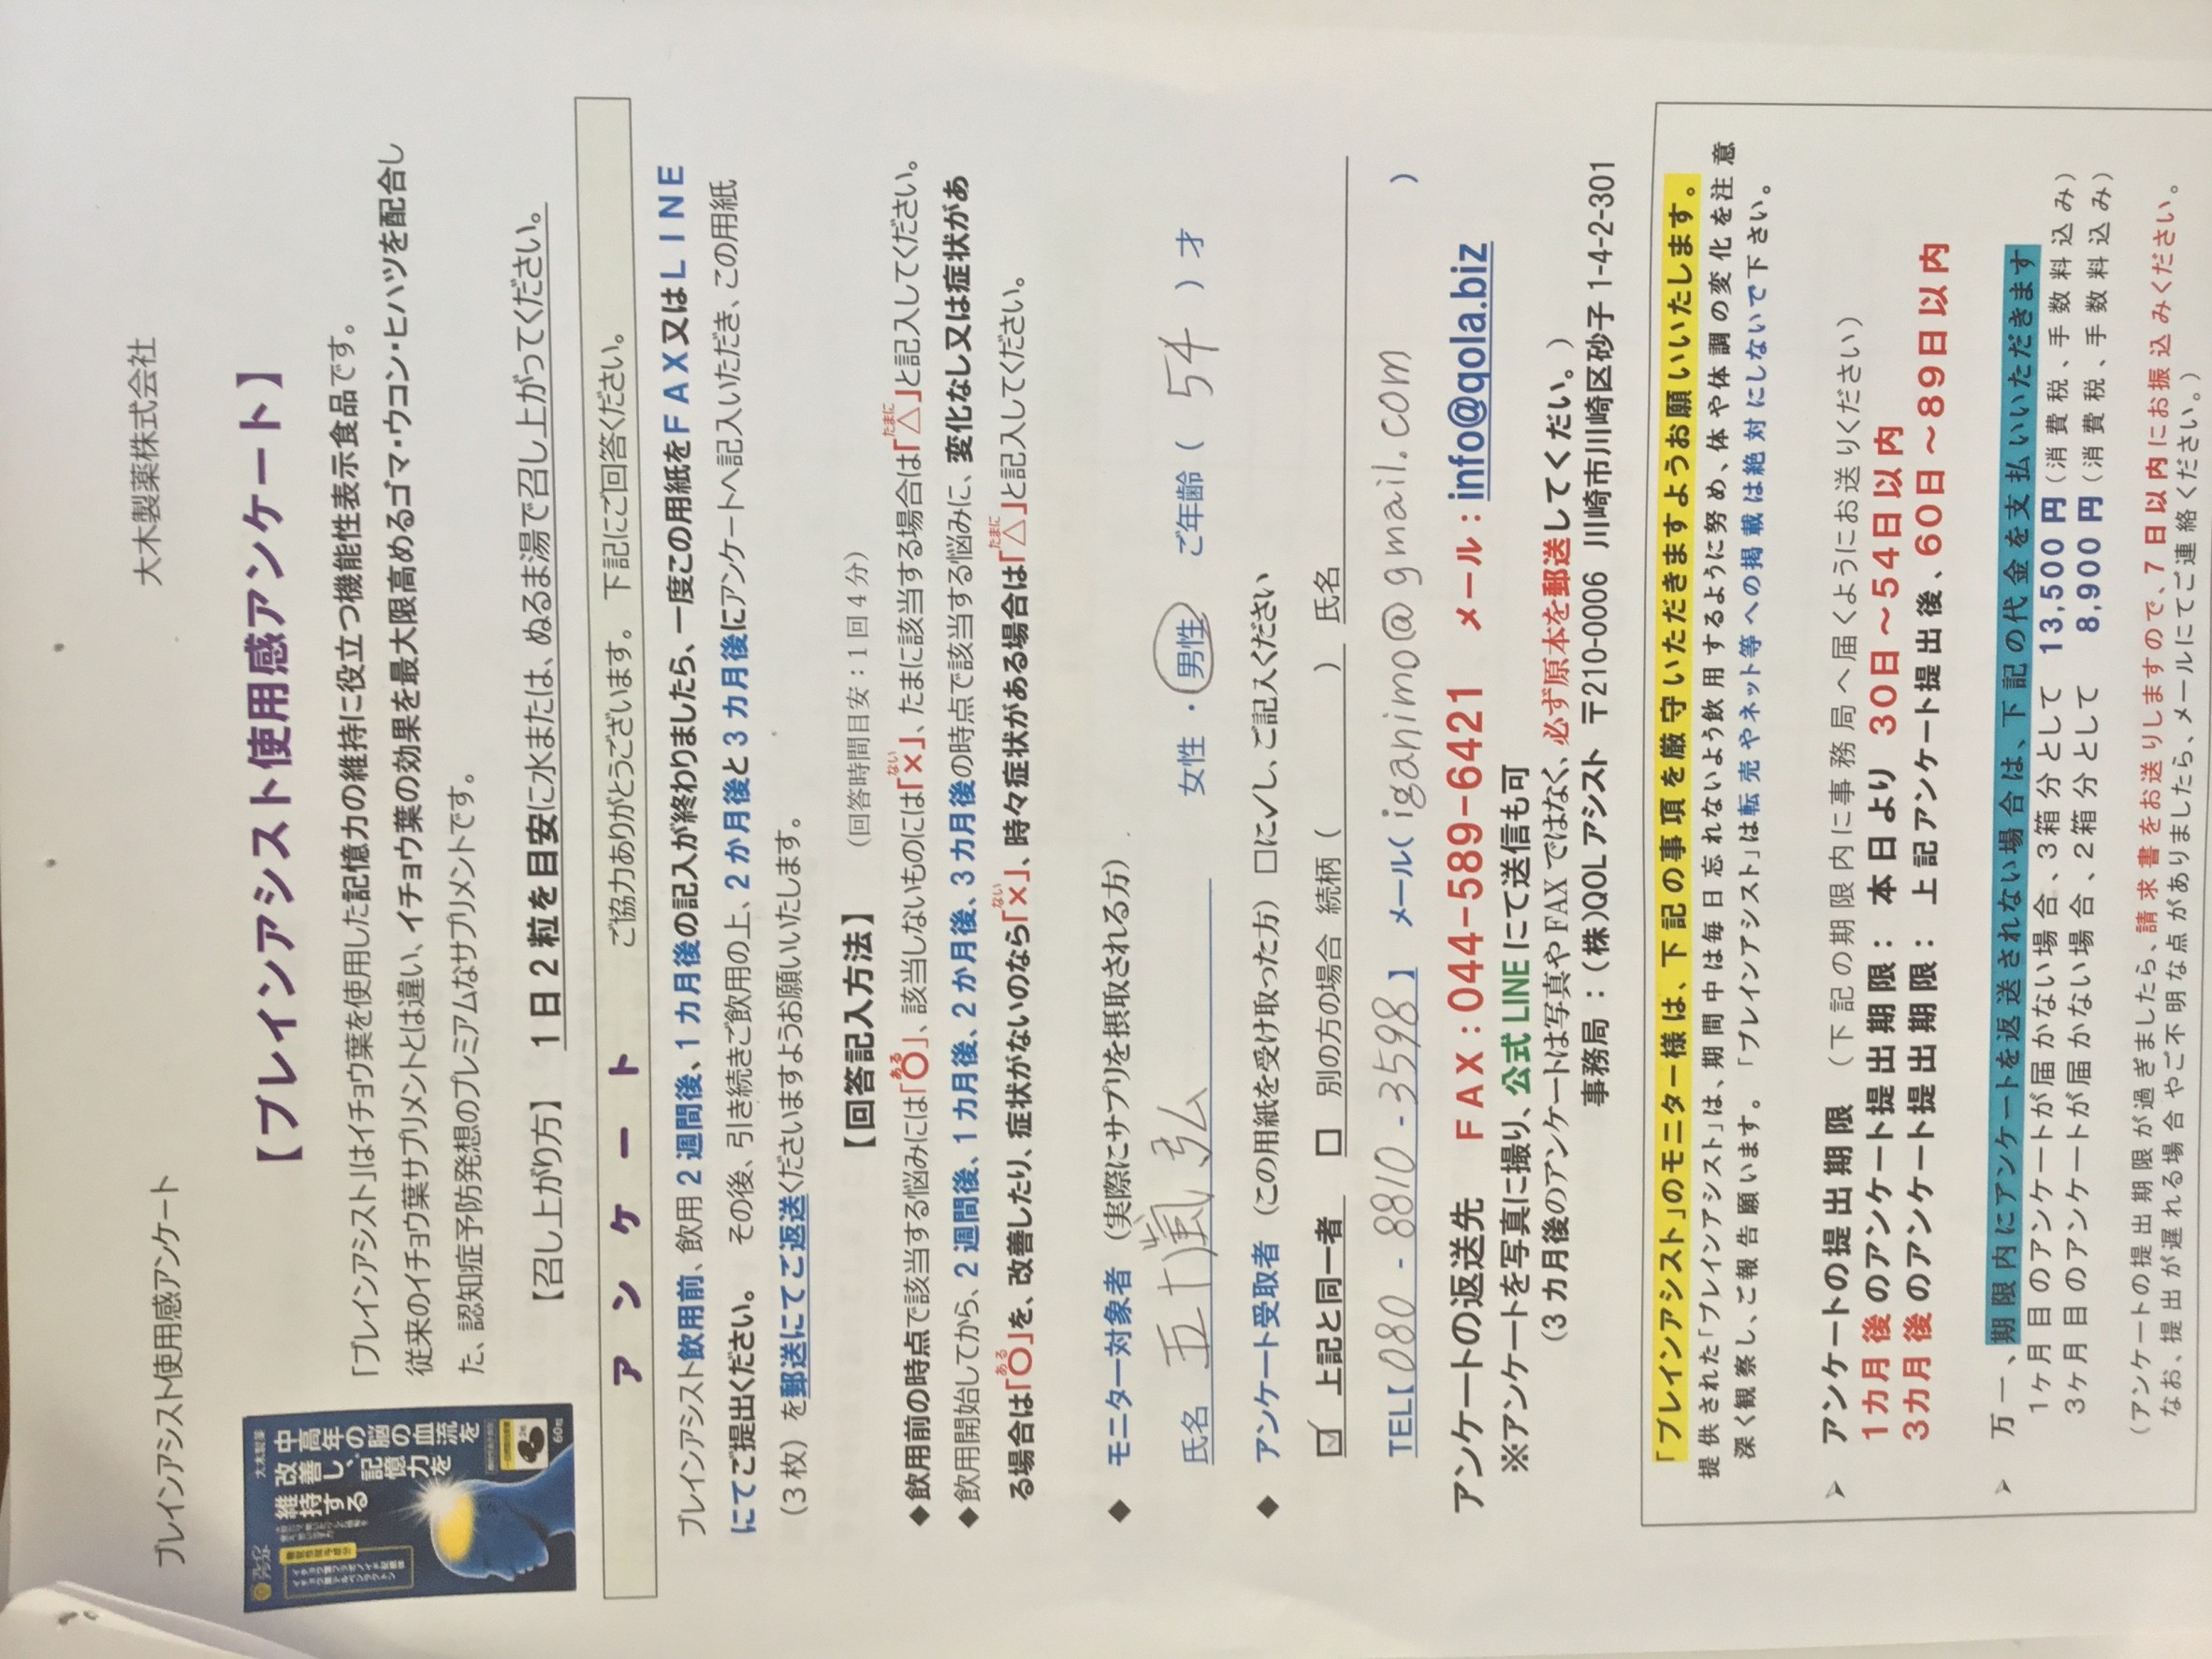 ブレインアシスト使用感アンケート　大木製薬株式会社
【ブレインアシスト使用感アンケート】
大木製薬
中高年の脳の血流を
改善し、記憶力を
維持する
ブレインアシスト
60粒
「ブレインアシスト」はイチョウ葉を使用した記憶力の維持に役立つ機能性表示食品です。
従来のイチョウ葉サプリメントとは違い、イチョウ葉の効果を最大限高めるゴマ・ウコン・ヒハツを配合し
た、認知症予防発想のプレミアムなサプリメントです。
【召し上がり方】　１日２粒を目安に水または、ぬるま湯で召し上がってください。
アンケート　ご協力ありがとうございます。下記にご回答ください。
ブレインアシスト飲用前、飲用２週間後、１カ月後の記入が終わりましたら、一度この用紙をＦＡＸ又はＬＩＮＥ
にてご提出ください。　その後、引き続きご飲用の上、２か月後と３カ月後にアンケートへ記入いただき、この用紙
（３枚）を郵送にてご返送くださいますようお願いいたします。
【回答記入方法】　（回答時間目安：１回４分）
◆飲用前の時点で該当する悩みには「〇ある」、該当しないものには「×ない」、たまに該当する場合は「△たまに」と記入してください。
◆飲用開始してから、２週間後、１カ月後、２か月後、３カ月後の時点で該当する悩みに、変化なし又は症状があ
る場合は「〇ある」を、改善したり、症状がないのなら「×ない」、時々症状がある場合は「△たまに」と記入してください。
◆　モニター対象者（実際にサプリを摂取される方）
氏名　五十嵐弘　女性・男性　ご年齢（　54　）才
◆　アンケート受取者（この用紙を受け取った方）□に✓し、ご記入ください
☑　上記と同一者　□　別の方の場合　続柄（　　）氏名
TEL【080-8810-3598】　メール（iganimo@gmail.com）
アンケートの返送先　ＦＡＸ：044-589-6421　メール：info@qola.biz
※アンケートを写真に撮り、公式LINEにて送信も可
（３カ月後のアンケートは写真やFAXではなく、必ず原本を郵送してくだい。）
事務局：（株）QOLアシスト　〒210-0006　川崎市川崎区砂子1-4-2-301
「ブレインアシスト」のモニター様は、下記の事項を厳守いただきますようお願いいたします。
提供された「ブレインアシスト」は、期間中は毎日忘れないよう飲用するように努め、体や体調の変化を注意
深く観察し、ご報告願います。「ブレインアシスト」は転売やネット等への掲載は絶対にしないで下さい。
➢　アンケートの提出期限　（下記の期限内に事務局へ届くようにお送りください）
１カ月後のアンケート提出期限：　本日より　３０日～５４日以内
３カ月後のアンケート提出期限：　上記アンケート提出後、６０日～８９日以内
➢　万一、期限内にアンケートを返送されない場合は、下記の代金を支払いいただきます
１ヶ月目のアンケートが届かない場合、３箱分として　13,500円（消費税、手数料込み）
３ヶ月目のアンケートが届かない場合、２箱分として　8,900円（消費税、手数料込み）
（アンケートの提出期限が過ぎましたら、請求書をお送りしますので、７日以内にお振込みください。
なお、提出が遅れる場合やご不明な点がありましたら、メールにてご連絡ください。）